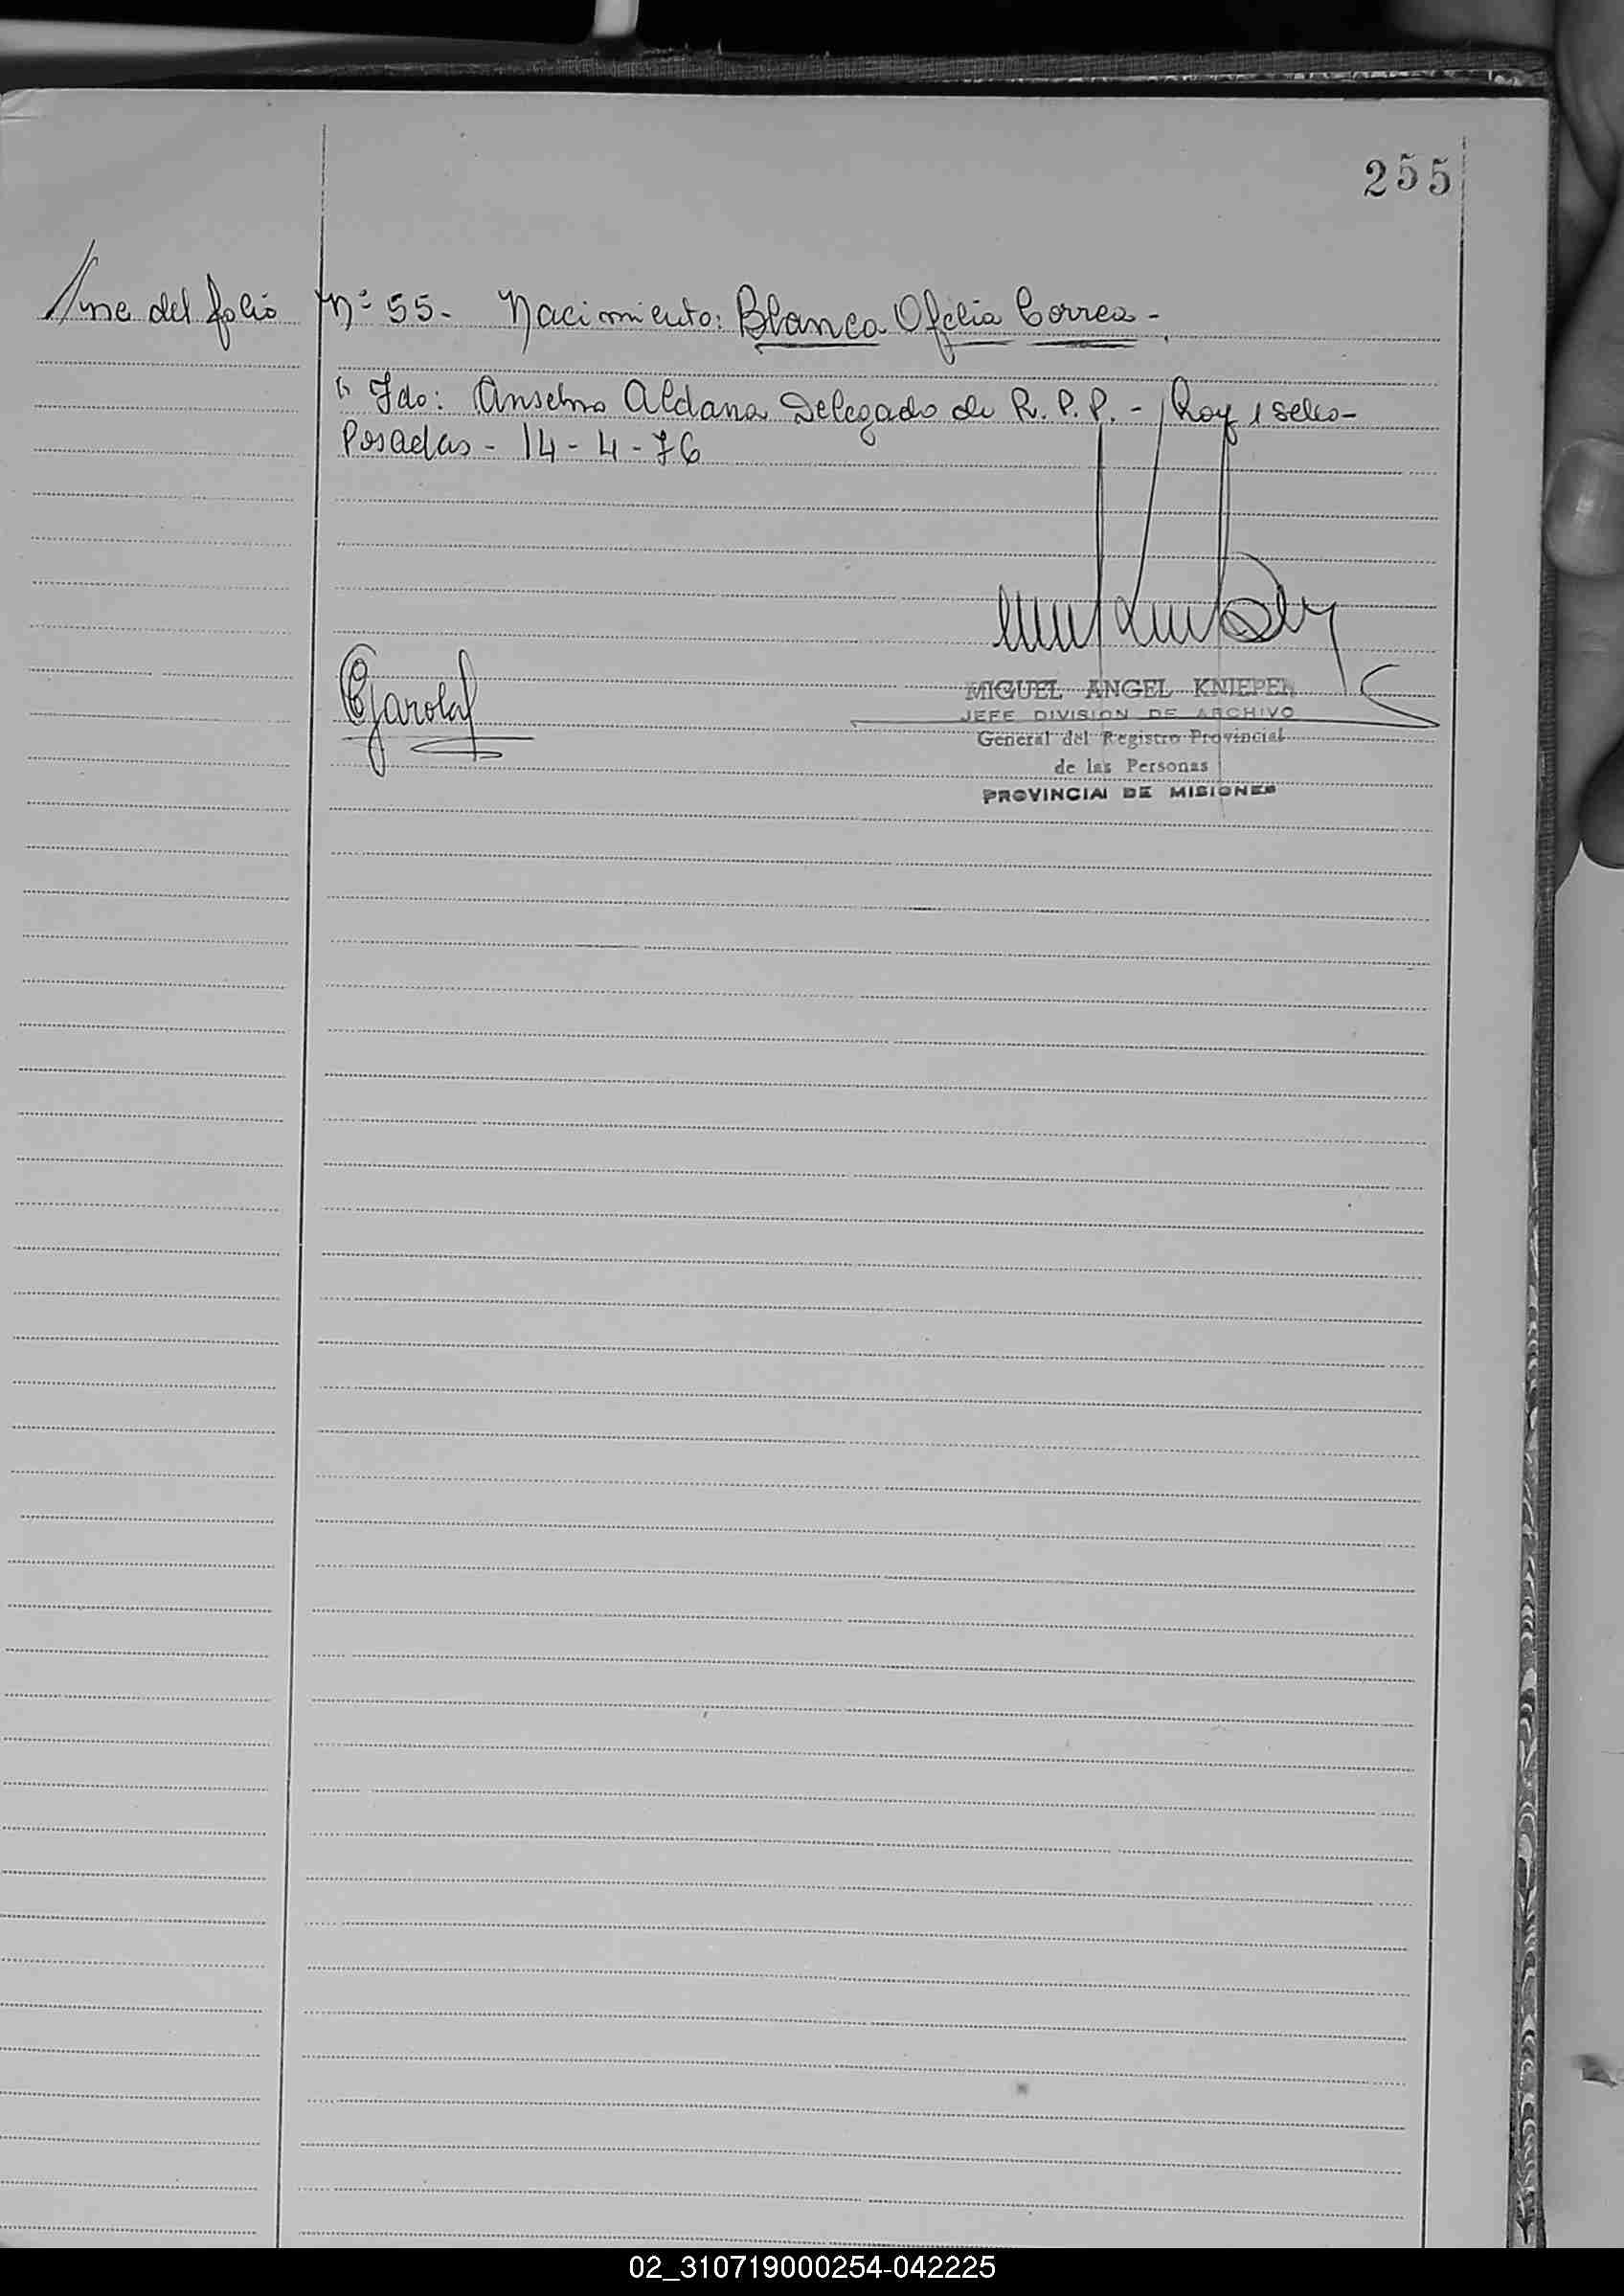 255
Vine del folio Nº 55 - Nacimiento: Blanca Ofelia Correa -
" Fdo: Anselmo Aldana Delegado de R. P. P. - Hay 1 sello -
Posadas - 14 - 4 - 76
MIGUEL ANGEL KNIEPER
JEFE DIVISION DE ARCHIVO
General del Registro Provincial
de las Personas
PROVINCIA DE MISIONES
02_310719000254-042225